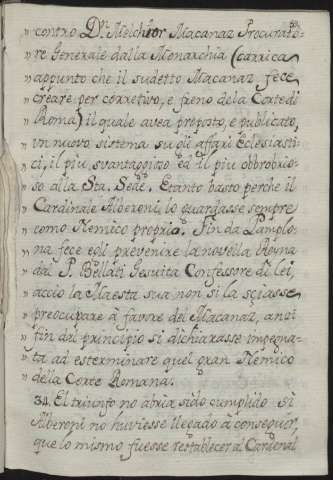 „ contro Dⁿ. Melchior Macanaz Procurato-
„ re Generale dalla Monarchia (carrica
„ appunto che il sudetto Macanaz fece
„ creare per corretivo, e freno dela Corte di
„ Roma) il quale avea proposto, e publicato,
„ un nuovo sistema sugli affari Eclesiasti-
„ ci, il piu svantaggioso ed il piu obbrobrio-
„ so alla Sta. Sede. E tanto bastò perche il
„ Cardinale Alberoni, lo guardasse sempre
„ como Nemico proprio. Fin da Pamplo-
„ na fece egli prevenire la novella Reyna
„ dal P. Bellati Gesuita Confessore di lei,
„ acciò la Maesta sua non si lasciasse
„ preocupare à favore del Macanaz, anzi
„ fin dal principio si dichiarasse impegna-
„ ta ad esterminare quel gran Nemico
„ della Corte Romana.
34. El triunfo no abria sido cumplido si
Alberoni no huviesse llegado à conseguir,
que lo mismo fuesse restablecer al Cardenal